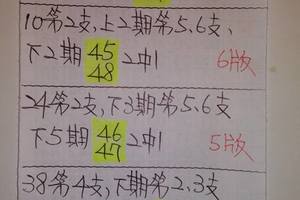 10第2支,上2期第5.6支、
下2期 45 48 2中1 6版
24第2支,下3期第5.6支
下5期 46 47 2中1 5版
38第4支,下期第2.3支